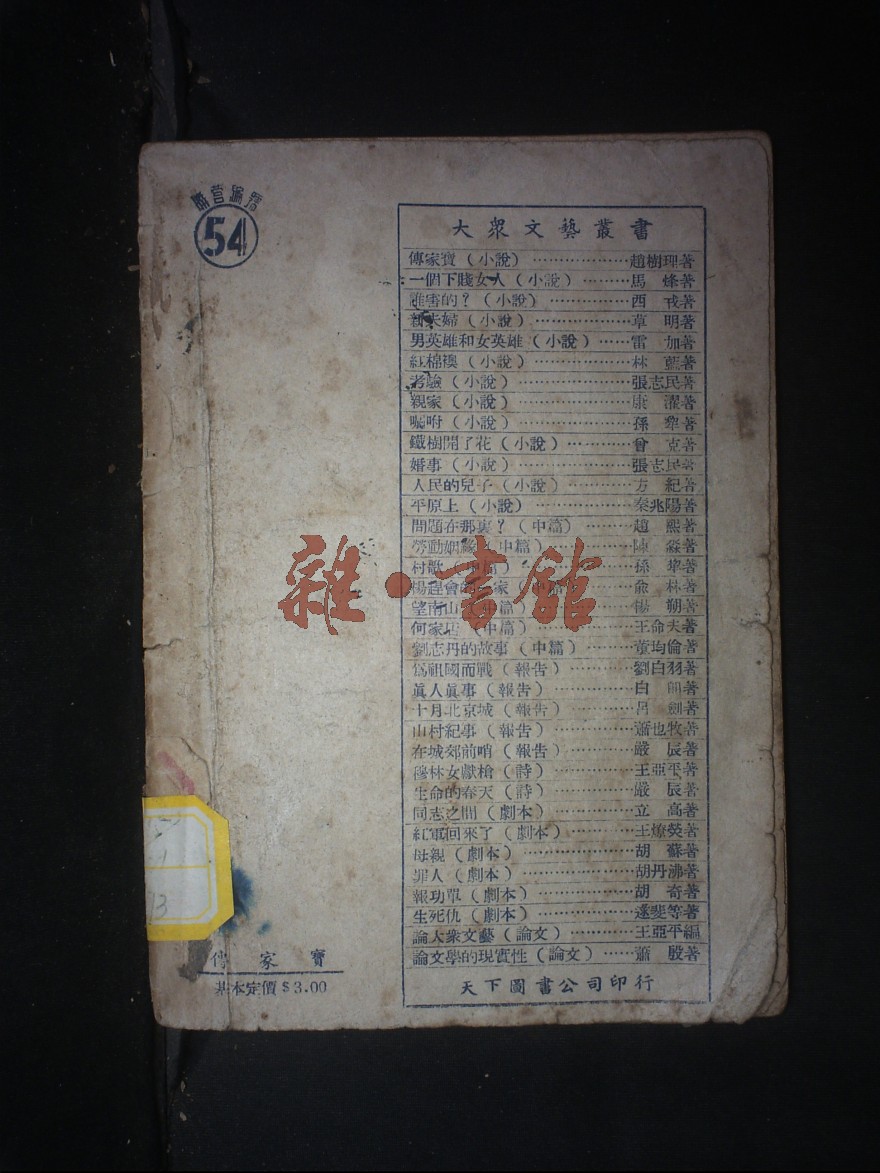 聯營編號
54
大眾文藝叢書
傳家寶（小說）………………趙樹理著
一個下賤女人（小說）………馬烽著
誰害的？（小說）……………西戎著
新夫婦（小說）………………草明著
男英雄和女英雄（小說）……雷加著
紅棉襖（小說）………………林藍著
考驗（小說）…………………張志民著
親家（小說）…………………康濯著
囑咐（小說）…………………孫犂著
鐵樹開了花（小說）…………曾克著
婚事（小說）…………………張志民著
人民的兒子（小說）…………方紀著
平原上（小說）………………秦兆陽著
問題在那裏？（中篇）………趙熙著
勞動姻緣（中篇）……………陳淼著
村歌 孫犂著
會的 家 俞林著
望南山 楊朔著
何家 （中篇）……………王命夫著
劉志丹的故事（中篇）………董均倫著
爲祖國而戰（報告）…………劉白羽著
眞人眞事（報告）……………白 著
十月北京城（報告）…………呂劍著
山村紀事（報告）……………蕭也牧著
在城郊前哨（報告）…………嚴辰著
穆林女獻槍（詩）……………王亞平著
生命的春天（詩）……………嚴辰著
同志之間（劇本）……………立高著
紅軍回來了（劇本）…………王燎熒著
母親（劇本）…………………胡蘇著
罪人（劇本）…………………胡丹沸著
報功單（劇本）………………胡奇著
生死仇（劇本）………………逯斐等著
論大衆文藝（論文）…………王亞平編
論文學的現實性（論文）……蕭殷著
天下圖書公司印行
傳家寶
基本定價$3.00
雜·書館